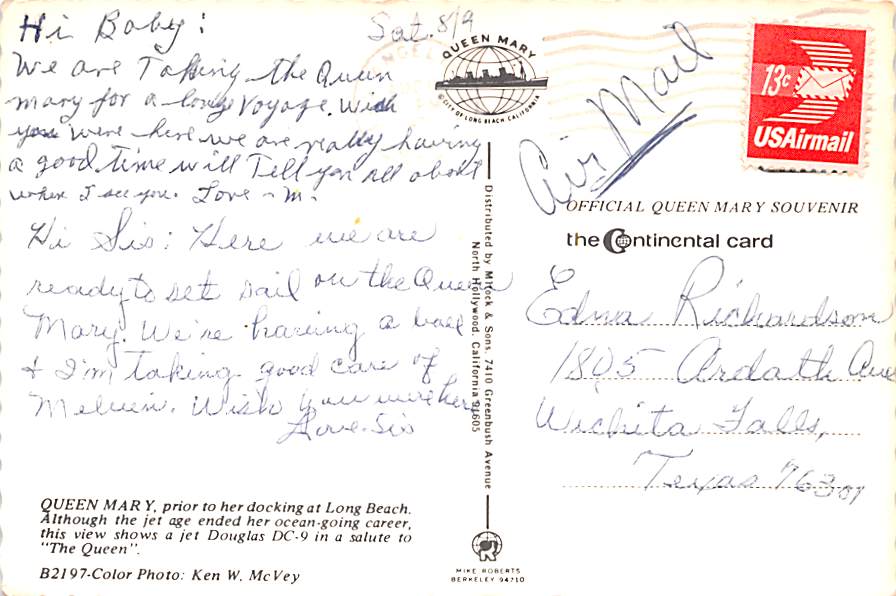 Hi Baby; Sat. 8/9
We are Taking the Queen
Mary for a long Voyage. Wish
you were here we are really having
a good time will Tell you all about
when I see you. Love - M.
Hi Sis: Here we are
ready to set sail on the Queen
Mary. We're having a ball
& I'm taking good care of
Melvin. Wish you were here
Love. Sis
QUEEN MARY, prior to her docking at Long Beach.
Although the jet age ended her ocean-going career,
this view shows a jet Douglas DC-9 in a salute to
"The Queen".
B2197-Color Photo: Ken W. McVey
QUEEN MARY
CITY OF LONG BEACH CALIFORNIA
Distributed by Mitock & Sons, 7410 Greenbush Avenue
North Hollywood, California 91605
MIKE ROBERTS
BERKELEY 94710
Air Mail
13c
USAirmail
OFFICIAL QUEEN MARY SOUVENIR
the Continental card
Edna Richardson
1805 Ardath Ave
Wichita Falls,
Texas 76301